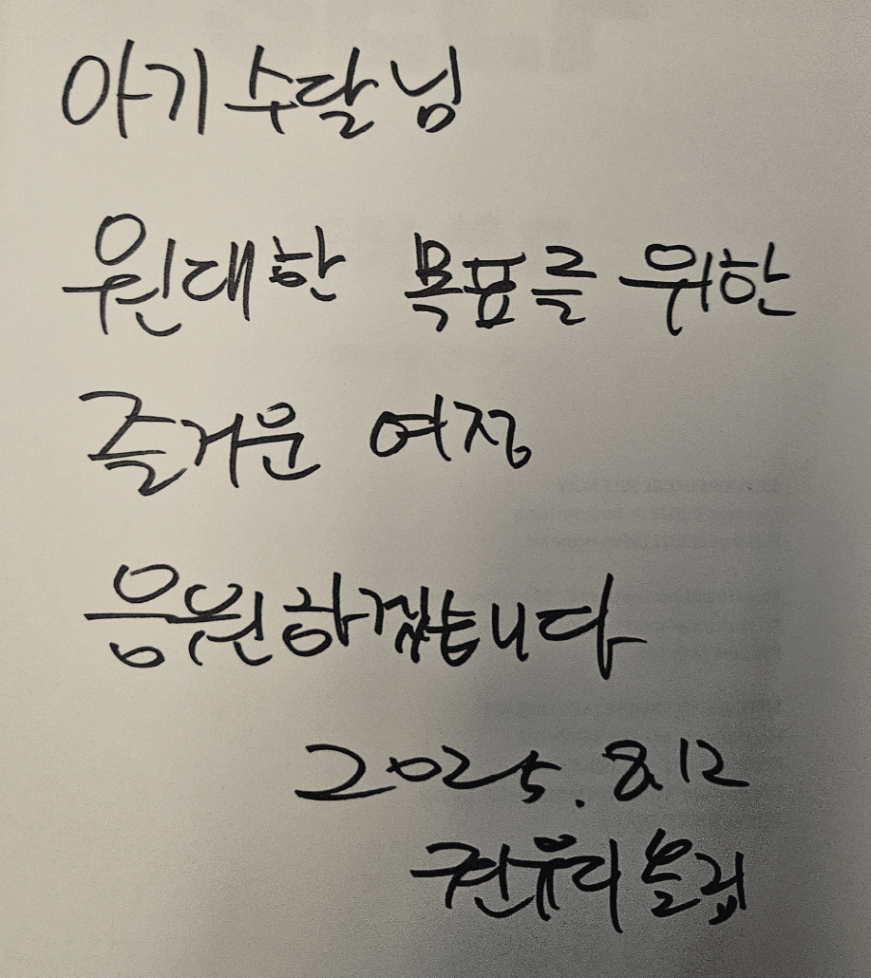 아기수달님
원대한 목표를 위한
즐거운 여정
응원하겠습니다
2025. 8. 12
권유리 드림